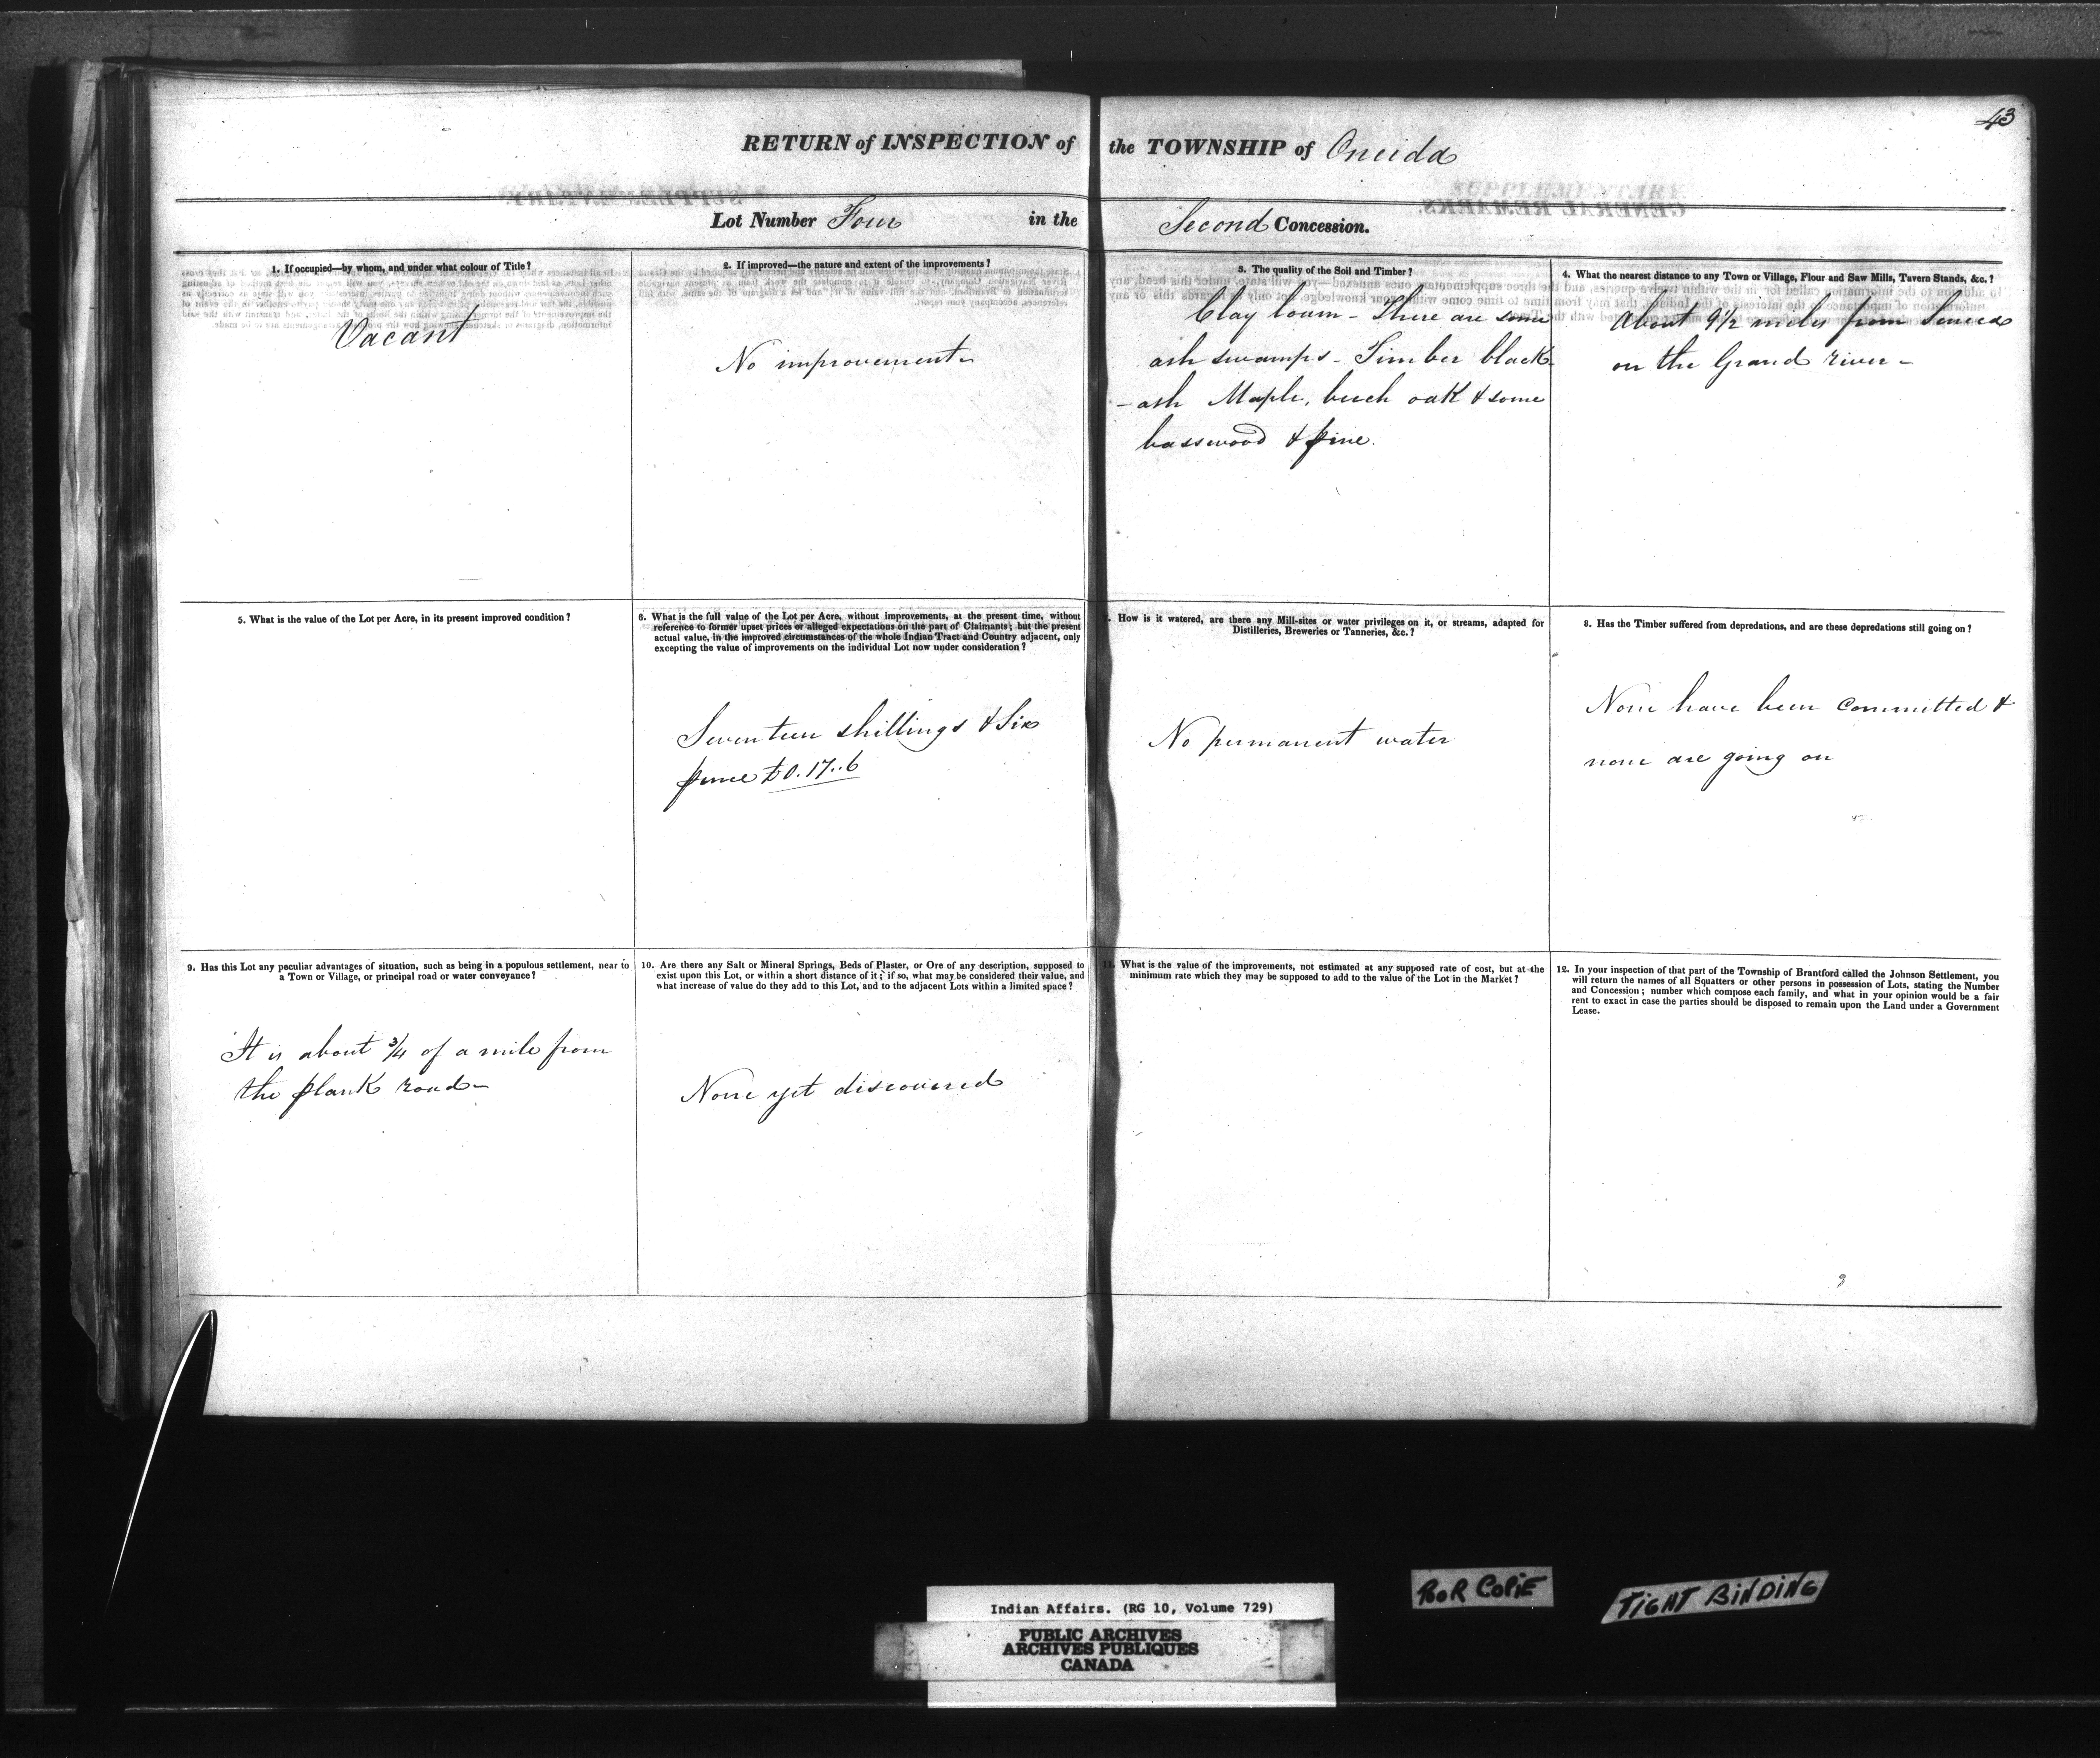 43
RETURN of INSPECTION of the TOWNSHIP of Oneida
Lot Number Four in the Second Concession.
1. If occupied—by whom, and under what colour of Title?
Vacant
2. If improved—the nature and extent of the improvements?
No improvements
3. The quality of the Soil and Timber?
Clay loam - There are some
ash swamps - Timber black
-ash Maple, beech oak & some
basswood & pine.
4. What the nearest distance to any Town or Village, Flour and Saw Mills, Tavern Stands, &c.?
About 9 1/2 miles from Seneca
on the Grand river -
5. What is the value of the Lot per Acre, in its present improved condition?
6. What is the full value of the Lot per Acre, without improvements, at the present time, without
reference to former upset prices or alleged expectations on the part of Claimants; but the present
actual value, in the improved circumstances of the whole Indian Tract and Country adjacent, only
excepting the value of improvements on the individual Lot now under consideration?
Seventeen shillings & Six
pence £0.17..6
How is it watered, are there any Mill-sites or water privileges on it, or streams, adapted for
Distilleries, Breweries or Tanneries, &c.?
No permanent water
8. Has the Timber suffered from depredations, and are these depredations still going on?
None have been committed &
none are going on
9. Has this Lot any peculiar advantages of situation, such as being in a populous settlement, near to
a Town or Village, or principal road or water conveyance?
It is about 3/4 of a mile from
the plank road -
10. Are there any Salt or Mineral Springs, Beds of Plaster, or Ore of any description, supposed to
exist upon this Lot, or within a short distance of it; if so, what may be considered their value, and
what increase of value do they add to this Lot, and to the adjacent Lots within a limited space?
None yet discovered
What is the value of the improvements, not estimated at any supposed rate of cost, but at the
minimum rate which they may be supposed to add to the value of the Lot in the Market?
12. In your inspection of that part of the Township of Brantford called the Johnson Settlement, you
will return the names of all Squatters or other persons in possession of Lots, stating the Number
and Concession; number which compose each family, and what in your opinion would be a fair
rent to exact in case the parties should be disposed to remain upon the Land under a Government
Lease.
POOR COPIE
TIGHT BINDING
Indian Affairs. (RG 10, Volume 729)
PUBLIC ARCHIVES
ARCHIVES PUBLIQUES
CANADA